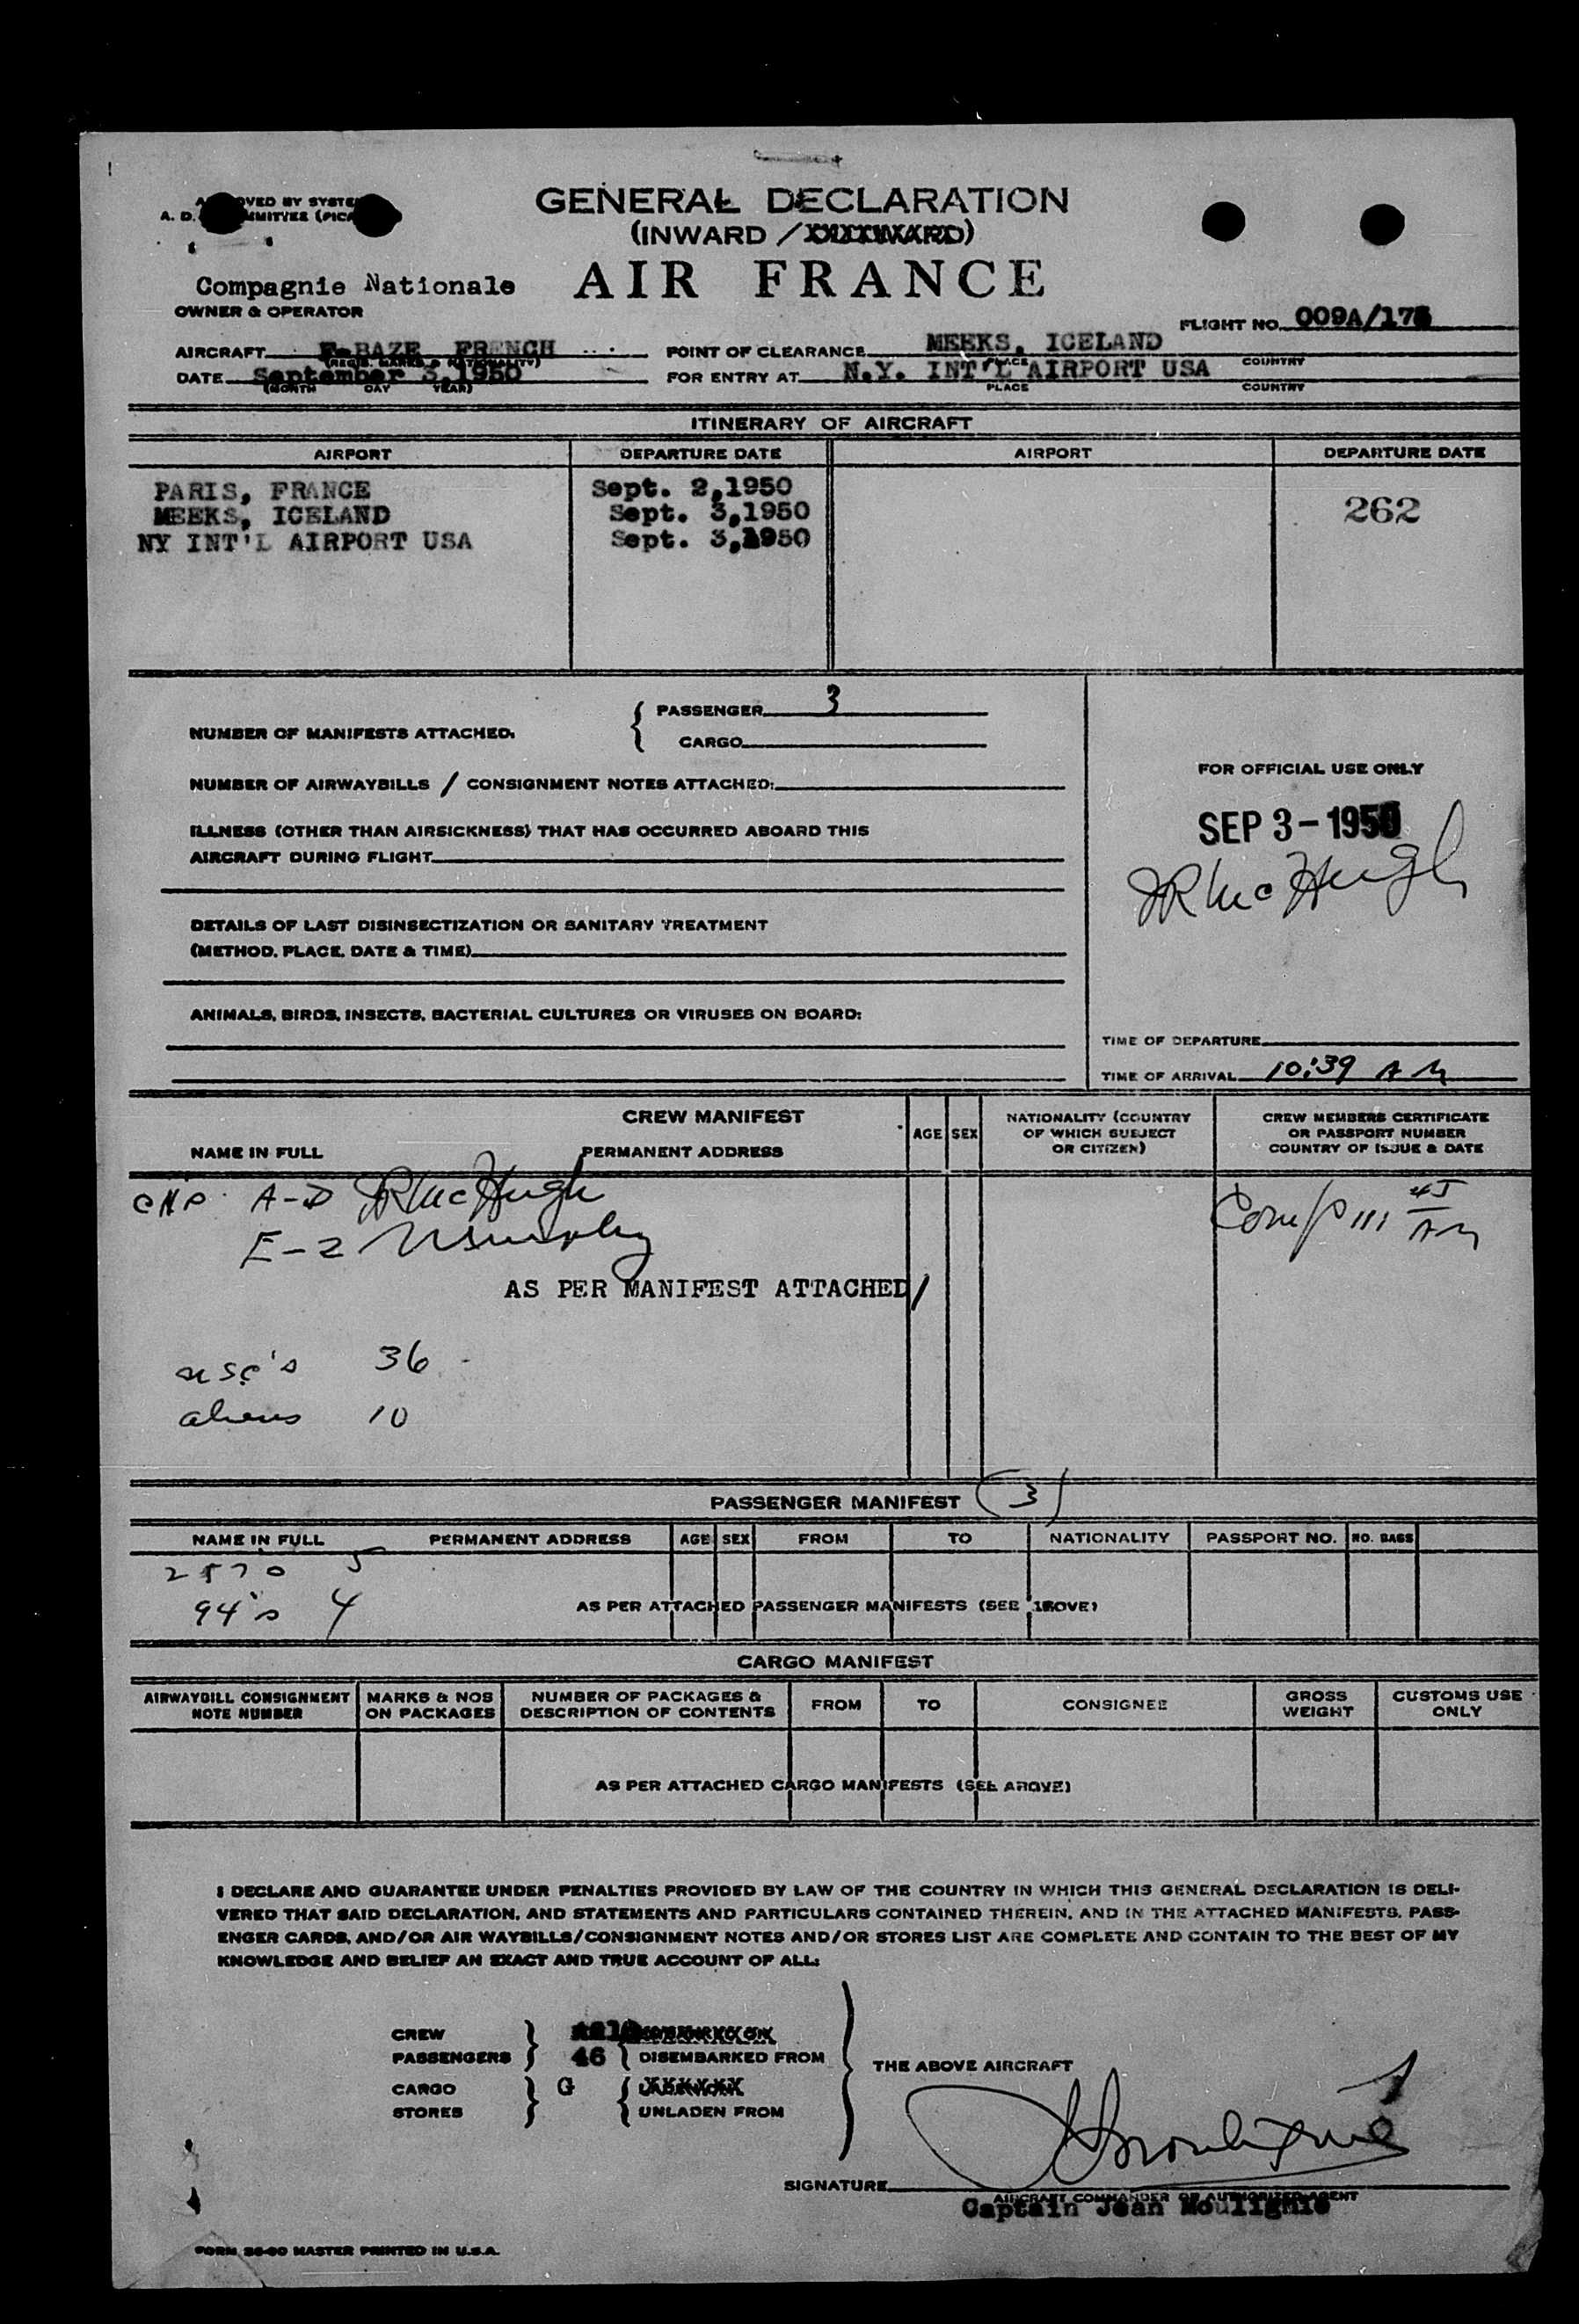 GENERAL DECLARATION
(INWARD /
Compagnie Nationale AIR FRANCE
OWNER & OPERATOR
FLIGHT NO. 009A/175
AIRCRAFT F-BAZE FRENCH POINT OF CLEARANCE MEEKS, ICELAND
(REGIS. MARKS & NATIONALITY) PLACE COUNTRY
DATE September 3,1950 FOR ENTRY AT N.Y. INT'L AIRPORT USA
(MONTH DAY YEAR) PLACE COUNTRY
ITINERARY OF AIRCRAFT
AIRPORT DEPARTURE DATE AIRPORT DEPARTURE DATE
PARIS, FRANCE Sept. 2,1950
MEEKS, ICELAND Sept. 3,1950 262
NY INT'L AIRPORT USA Sept. 3,1950
PASSENGER 3
NUMBER OF MANIFESTS ATTACHED.
CARGO
NUMBER OF AIRWAYBILLS / CONSIGNMENT NOTES ATTACHED:
FOR OFFICIAL USE ONLY
SEP 3-1950
JR McHugh
ILLNESS (OTHER THAN AIRSICKNESS) THAT HAS OCCURRED ABOARD THIS
AIRCRAFT DURING FLIGHT
DETAILS OF LAST DISINSECTIZATION OR SANITARY TREATMENT
(METHOD, PLACE, DATE & TIME)
ANIMALS, BIRDS, INSECTS, BACTERIAL CULTURES OR VIRUSES ON BOARD:
TIME OF DEPARTURE
TIME OF ARRIVAL 10:39 AM
CREW MANIFEST
NAME IN FULL PERMANENT ADDRESS AGE SEX NATIONALITY (COUNTRY OF WHICH SUBJECT OR CITIZEN) CREW MEMBERS CERTIFICATE OR PASSPORT NUMBER COUNTRY OF ISSUE & DATE
A-D JR McHugh
E-2 Comp 111 45 AM
AS PER MANIFEST ATTACHED/
usc's 36
aliens 10
PASSENGER MANIFEST (3)
NAME IN FULL PERMANENT ADDRESS AGE SEX FROM TO NATIONALITY PASSPORT NO. NO. BAGS
5
94's 4 AS PER ATTACHED PASSENGER MANIFESTS (SEE ABOVE)
CARGO MANIFEST
AIRWAYBILL CONSIGNMENT NOTE NUMBER MARKS & NOS ON PACKAGES NUMBER OF PACKAGES & DESCRIPTION OF CONTENTS FROM TO CONSIGNEE GROSS WEIGHT CUSTOMS USE ONLY
AS PER ATTACHED CARGO MANIFESTS (SEE ABOVE)
I DECLARE AND GUARANTEE UNDER PENALTIES PROVIDED BY LAW OF THE COUNTRY IN WHICH THIS GENERAL DECLARATION IS DELI-
VERED THAT SAID DECLARATION, AND STATEMENTS AND PARTICULARS CONTAINED THEREIN, AND IN THE ATTACHED MANIFESTS, PASS-
ENGER CARDS, AND/OR AIR WAYBILLS/CONSIGNMENT NOTES AND/OR STORES LIST ARE COMPLETE AND CONTAIN TO THE BEST OF MY
KNOWLEDGE AND BELIEF AN EXACT AND TRUE ACCOUNT OF ALL:
CREW
PASSENGERS 46 DISEMBARKED FROM
THE ABOVE AIRCRAFT
CARGO G
STORES UNLADEN FROM
SIGNATURE
AIRCRAFT COMMANDER OR AUTHORIZED AGENT
Captain Jean Moulignie
FORM 26-90 MASTER PRINTED IN U.S.A.